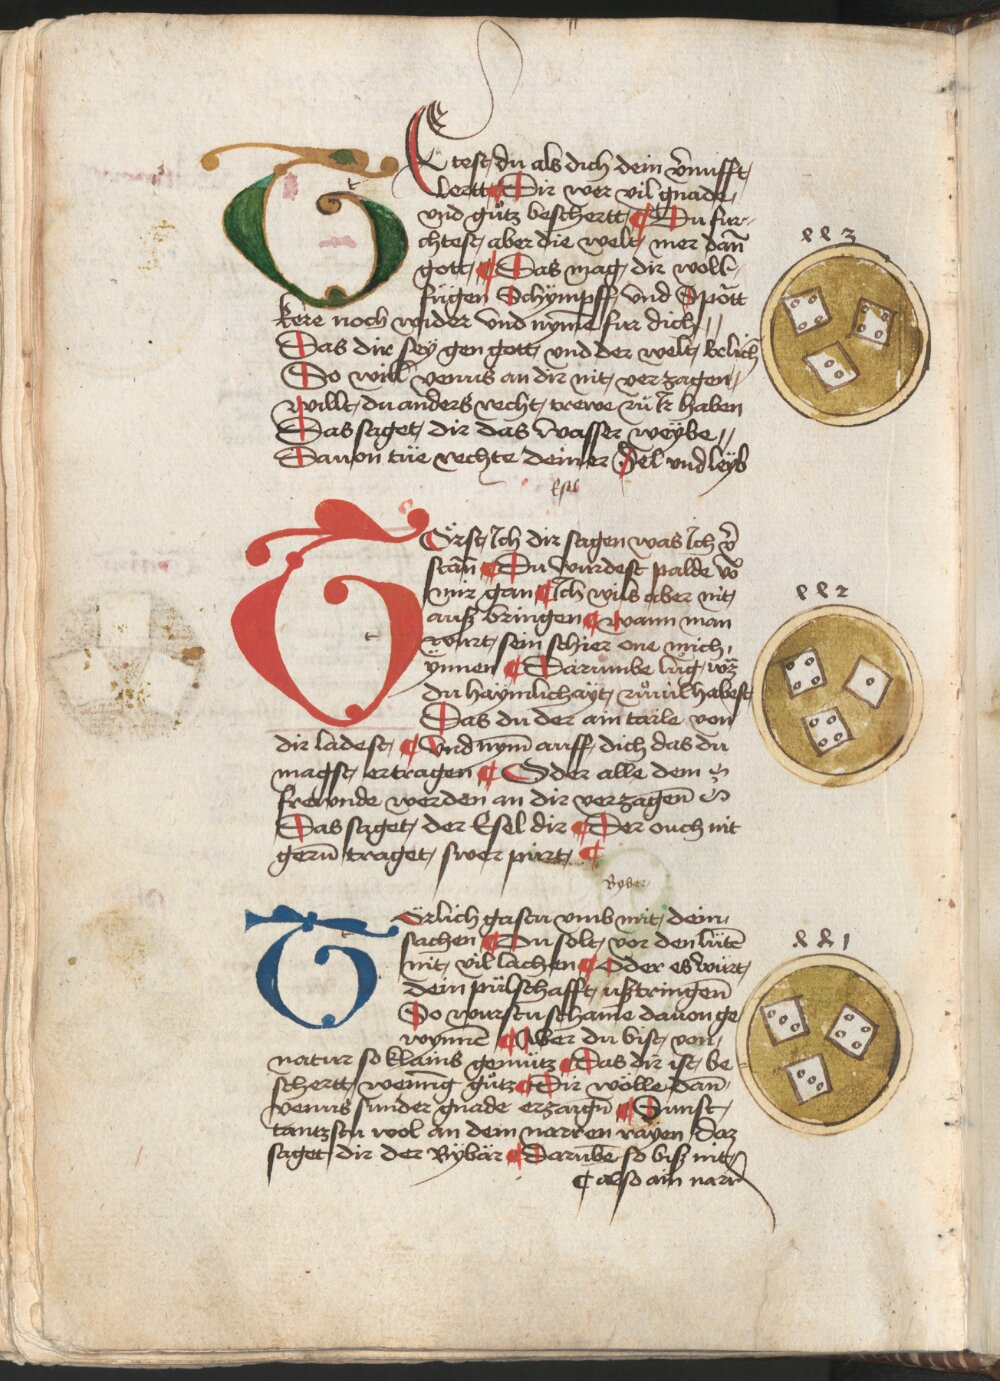 Tetest du als dich dein v̄nuifft
lertt Dir wer vil gnade
vnd gůtz beschertt Du fur-
chtest aber die welt mer dañ
gott Das mag dir woll
fügen Schÿmpff vnd Spôtt
kere noch wider vnd nym̄e fur dich
Das dir seÿ gen gott vnd der welt
So will venus an dir nit verzagen
willt du anders recht trewe haben
Das saget dir das wasser weÿbe
Dauon tüe rechte deiner Sel vnd leÿb
Esel
Törst Ich dir sagen was Ich v̄
stañ Du wurdest palde võ
mir gan Ich wils aber nit
auß bringen wann man
wurt sein schier one mich
ÿnnen Darumbe lůg wz
du haÿmlichaÿt habest
Das du der ain taile von
dir ladest vnd nym̄ auff dich das du
magst ertragen Oder alle dein
frewnde werden an dir verzageñ
Das saget der Esel dir Der ouch nit
gerñ traget swer pürt
Byber
Törlich gastu vmb mit dein
sachen Du solt vor den lüte
nit vil lachen Oder es würt
dein pülschafft ußtringen
So wurstu schame dauon ge
wynnē Aber du bist von
natur so klains gemütz Das dir ist be
schertt wennig gůtz Dir wölle dañ
venus sunder gnade erzaigñ Sunst
tantzstu wol an dem narren rayen daz
saget dir der Bÿbär Darumbe so biß nit
also ain narr
ꝭꝭ3
ꝭꝭ2
ꝭꝭ1